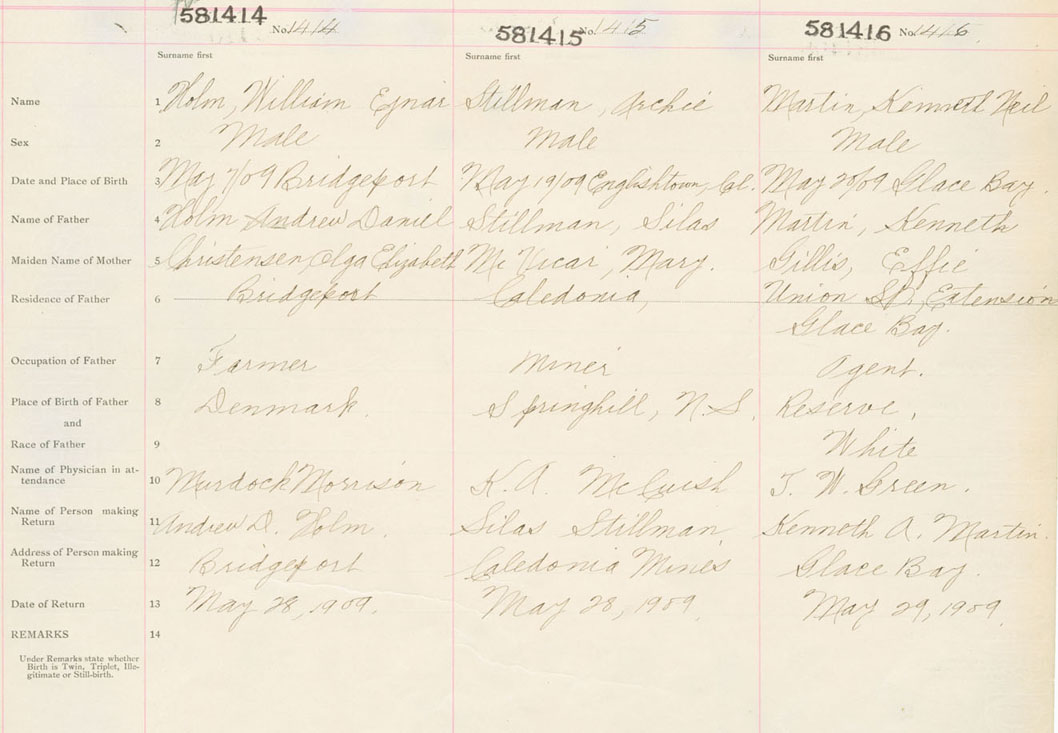 581414 No. 1414 581415 No. 1415 581416 No. 1416
Surname first Surname first Surname first
Name 1 Holm, William Ejnar Stillman, Archie Martin, Kenneth Neil
Sex 2 Male Male Male
Date and Place of Birth 3 May 7/09 Bridgeport May 19/09 Englishtown, Cal. May 20/09 Glace Bay.
Name of Father 4 Holm Andrew Daniel Stillman, Silas Martin, Kenneth
Maiden Name of Mother 5 Christensen, Olga Elizabeth Mc Vicar, Mary. Gillis, Effie
Residence of Father 6 Bridgeport Caledonia, Union St. Extension
Glace Bay.
Occupation of Father 7 Farmer Miner Agent.
Place of Birth of Father 8 Denmark. Springhill, N.S. Reserve,
and
Race of Father 9 White
Name of Physician in at-
tendance 10 Murdock Morrison K. A. McCuish T. W. Green.
Name of Person making
Return 11 Andrew D. Holm. Silas Stillman Kenneth A. Martin.
Address of Person making
Return 12 Bridgeport Caledonia Mines Glace Bay.
Date of Return 13 May 28, 1909. May 28, 1909 May 29, 1909.
REMARKS 14
Under Remarks state whether
Birth is Twin, Triplet, Ille-
gitimate or Still-birth.